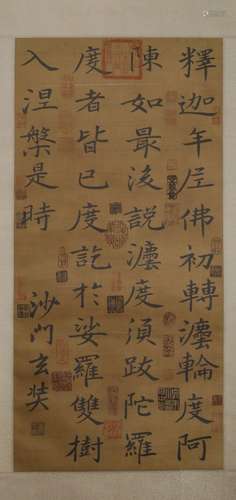 釋迦牟尼佛初轉灋輪度阿
陳如最後説灋度須跋陀羅
度者皆已度訖於娑羅雙樹
入涅槃是時
沙門玄奘